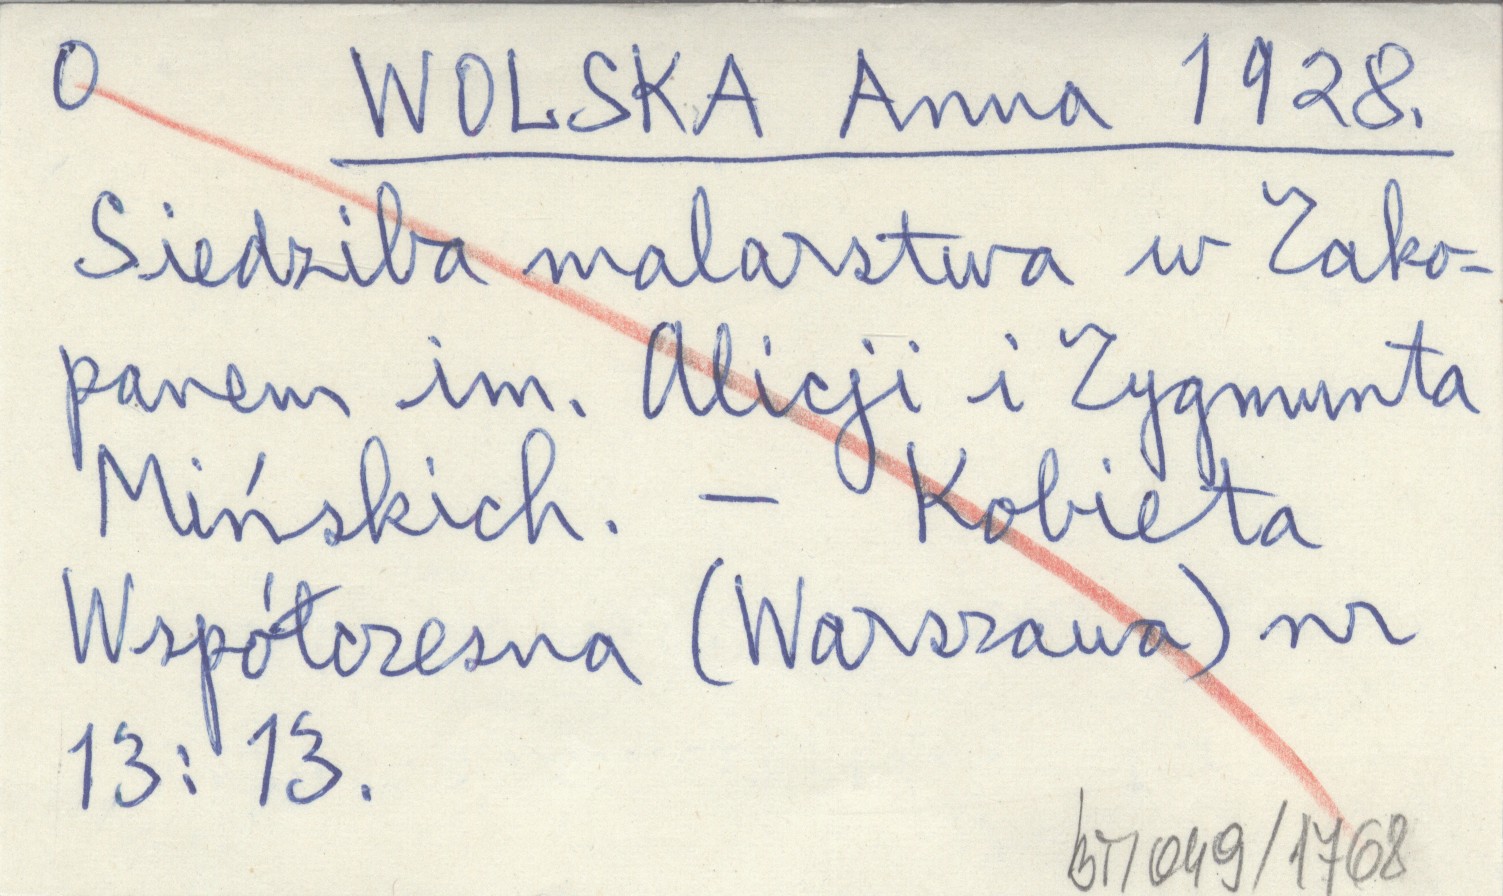 O WOLSKA Anna 1928.
Siedziba malarstwa w Zako-
panem im. Alicji i Zygmunta
Mińskich. — Kobieta
Współczesna (Warszawa) nr
13: 13.
BT/049/1768